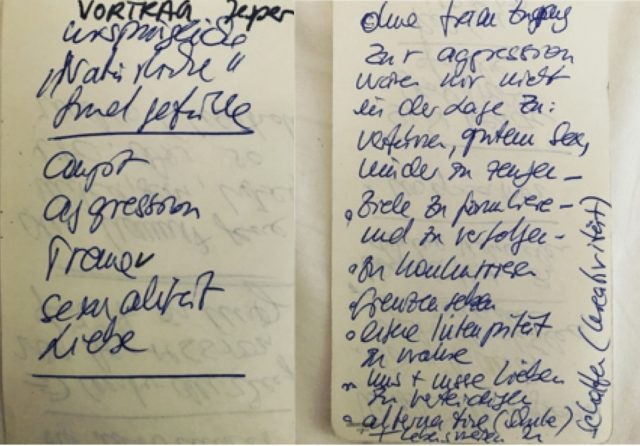 VORTRAG Jesper
ursprüngliche
"Natürliche"
Grundgefühle
angst
aggression
Trauer
sexualität
Liebe
ohne freien Zugang
zur aggression
wären wir nicht
in der Lage zu:
verführen, gutem Sex,
Kinder zu zeugen -
Ziele zu formulieren -
und zu verfolgen -
zu konkurrieren
Grenzen setzen
eigene Integrität
zu wahren
uns + unsere Lieben
zu verteidigen
alternative
schaffen (Kreativität)